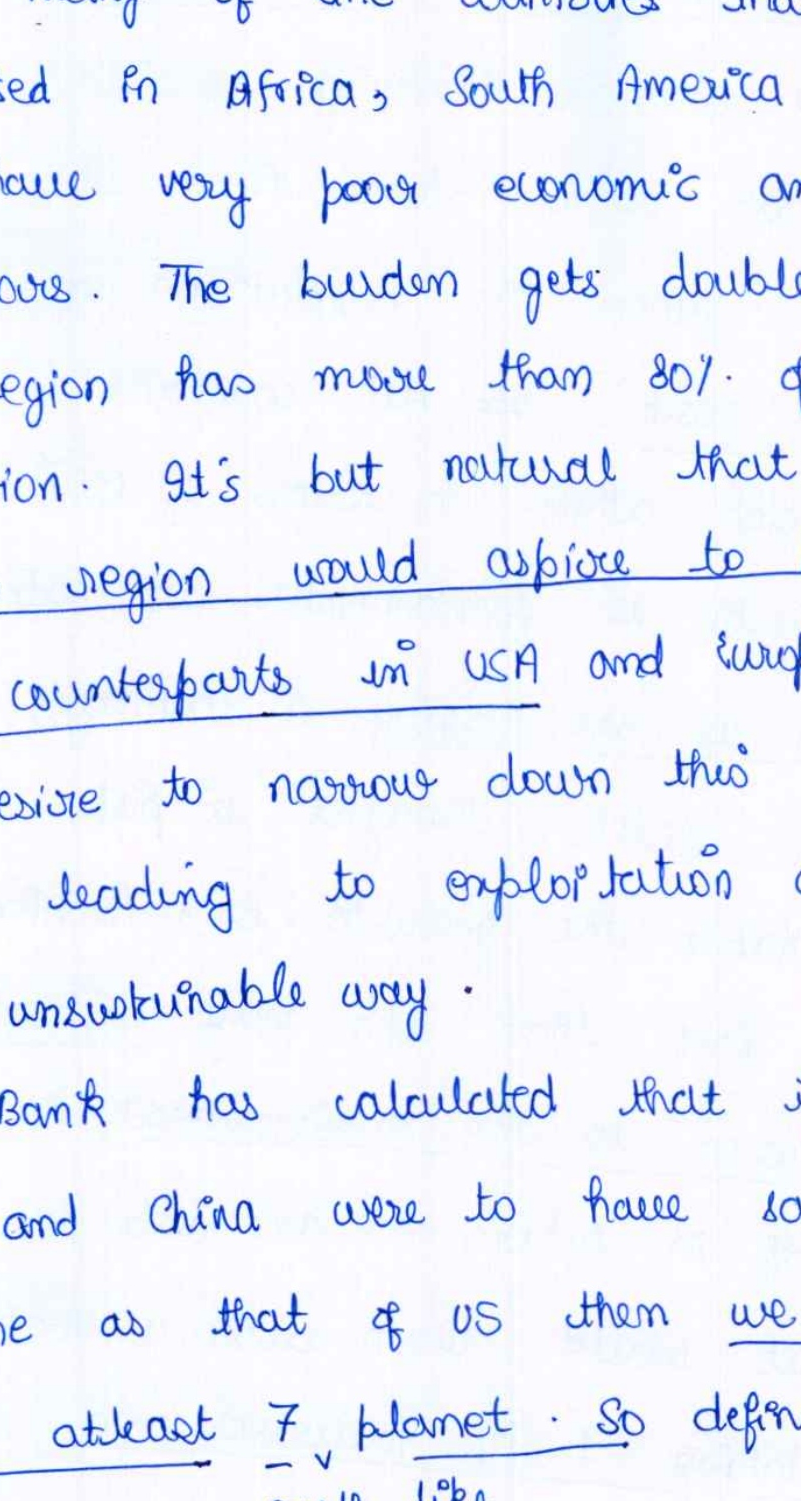 of the
sed in Africa, South America
have very poor economic an
ors. The burden gets double
egion has more than 80%. of
ion. It's but natural that
region would aspire to
counterparts in USA and Europ
esire to narrow down this
leading to exploitation o
unsustainable way.
Bank has calculated that i
and China were to have so
ne as that of US then we
atleast 7 planet. So defin
earth like